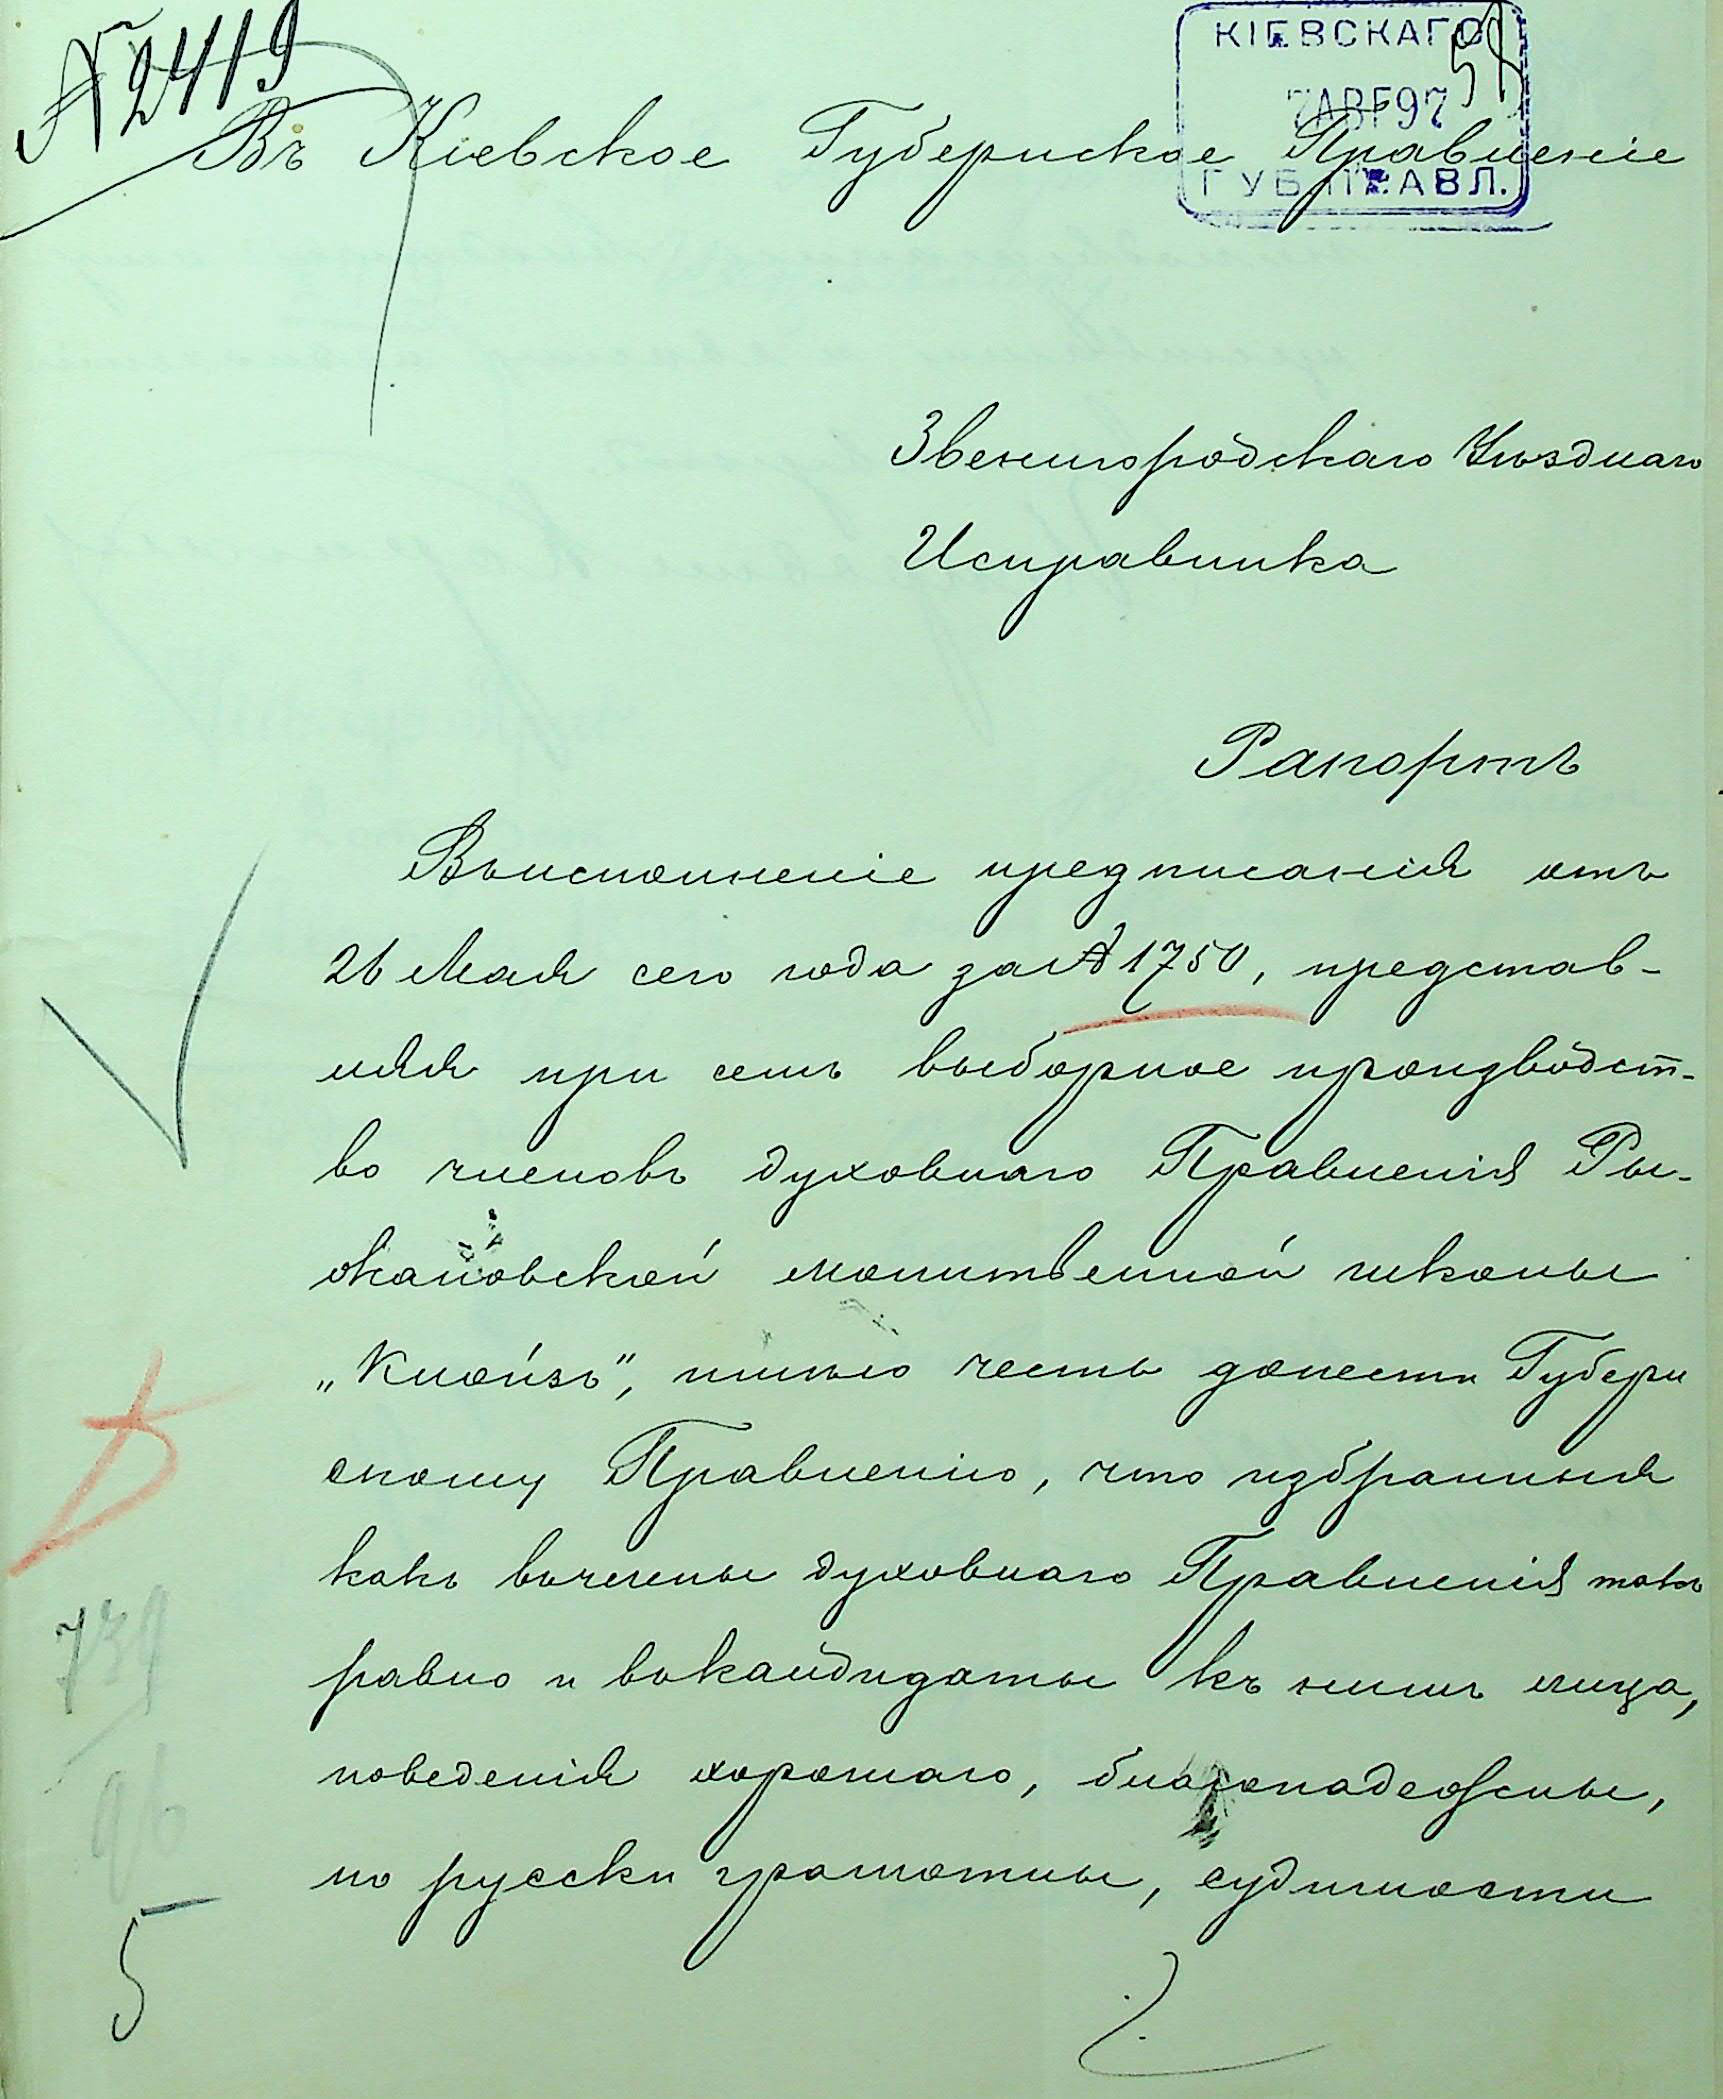 № 2419
КІЕВСКАГО
58
7 АВГ 97
ГУБ. ПРАВЛ.
Въ Кіевское Губернское Правленіе
Звенигородскаго Уѣзднаго
Исправника
Рапортъ
Выисполненіе предписанія отъ
26 Мая сего года за № 1750, представ-
ляя при семъ выборное производст-
во членовъ духовнаго Правленія Ры-
жановской молитвенной школы
„Клойзъ", имѣю честь донести Губерн
скому Правленію, что избранныя
какъ вычлены духовнаго Правленія такъ
равно и выкандидаты къ нимъ лица,
поведенія хорошаго, благонадежны,
по русски грамотны, судимости
739
96
5